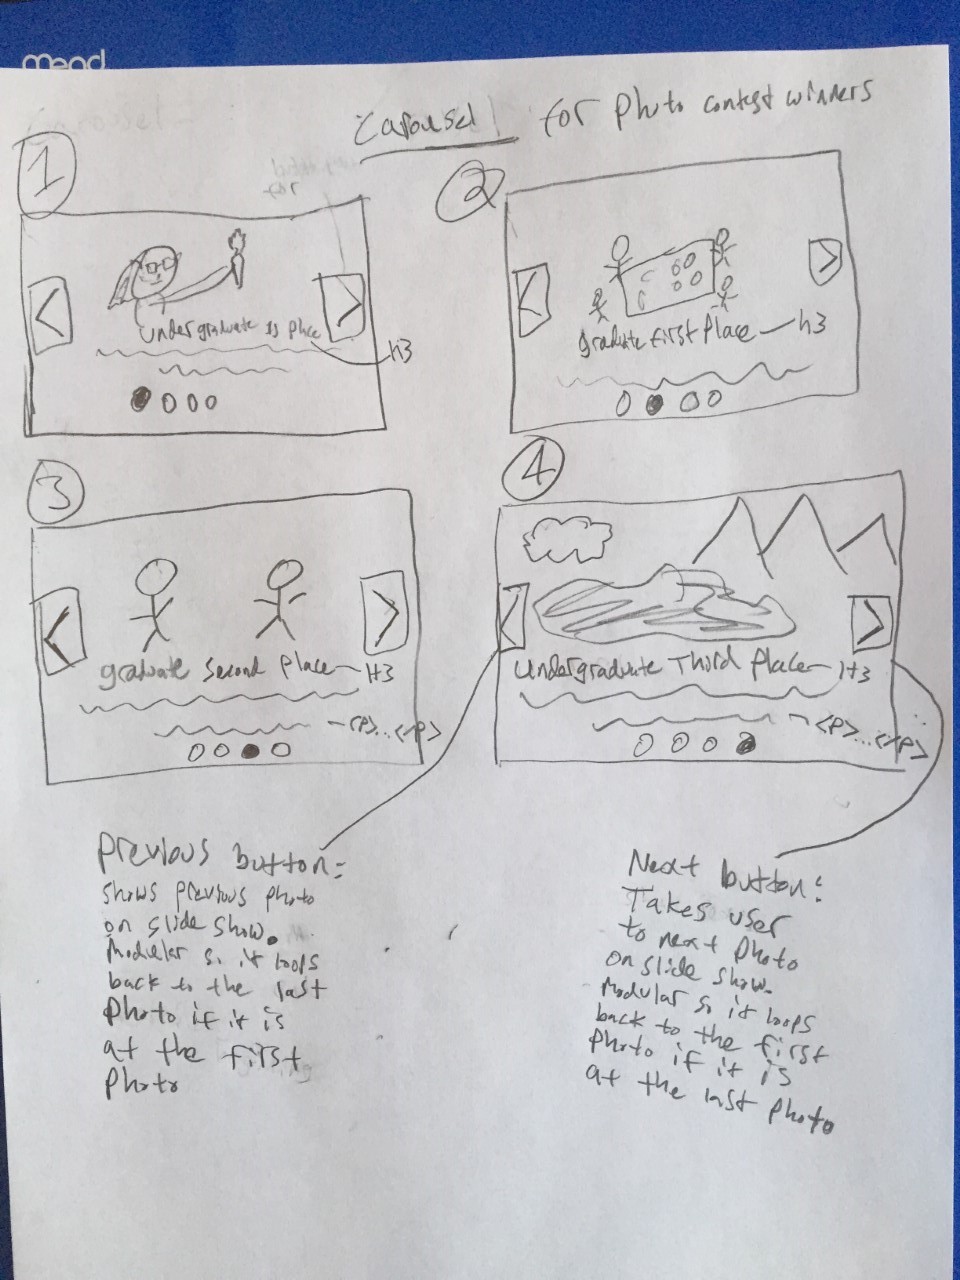 mead
Carousel for photo contest winners
1
undergraduate 1s place
h3
2
graduate First Place h3
3
graduate second place H3
<P>...</P>
4
Undergraduate Third place H3
<P>...</P>
Previous button:
shows previous photo
on slide show.
Modular so it loops
back to the last
photo if it is
at the first
photo
Next button:
Takes user
to next photo
on slide show.
Modular so it loops
back to the first
photo if it is
at the last photo